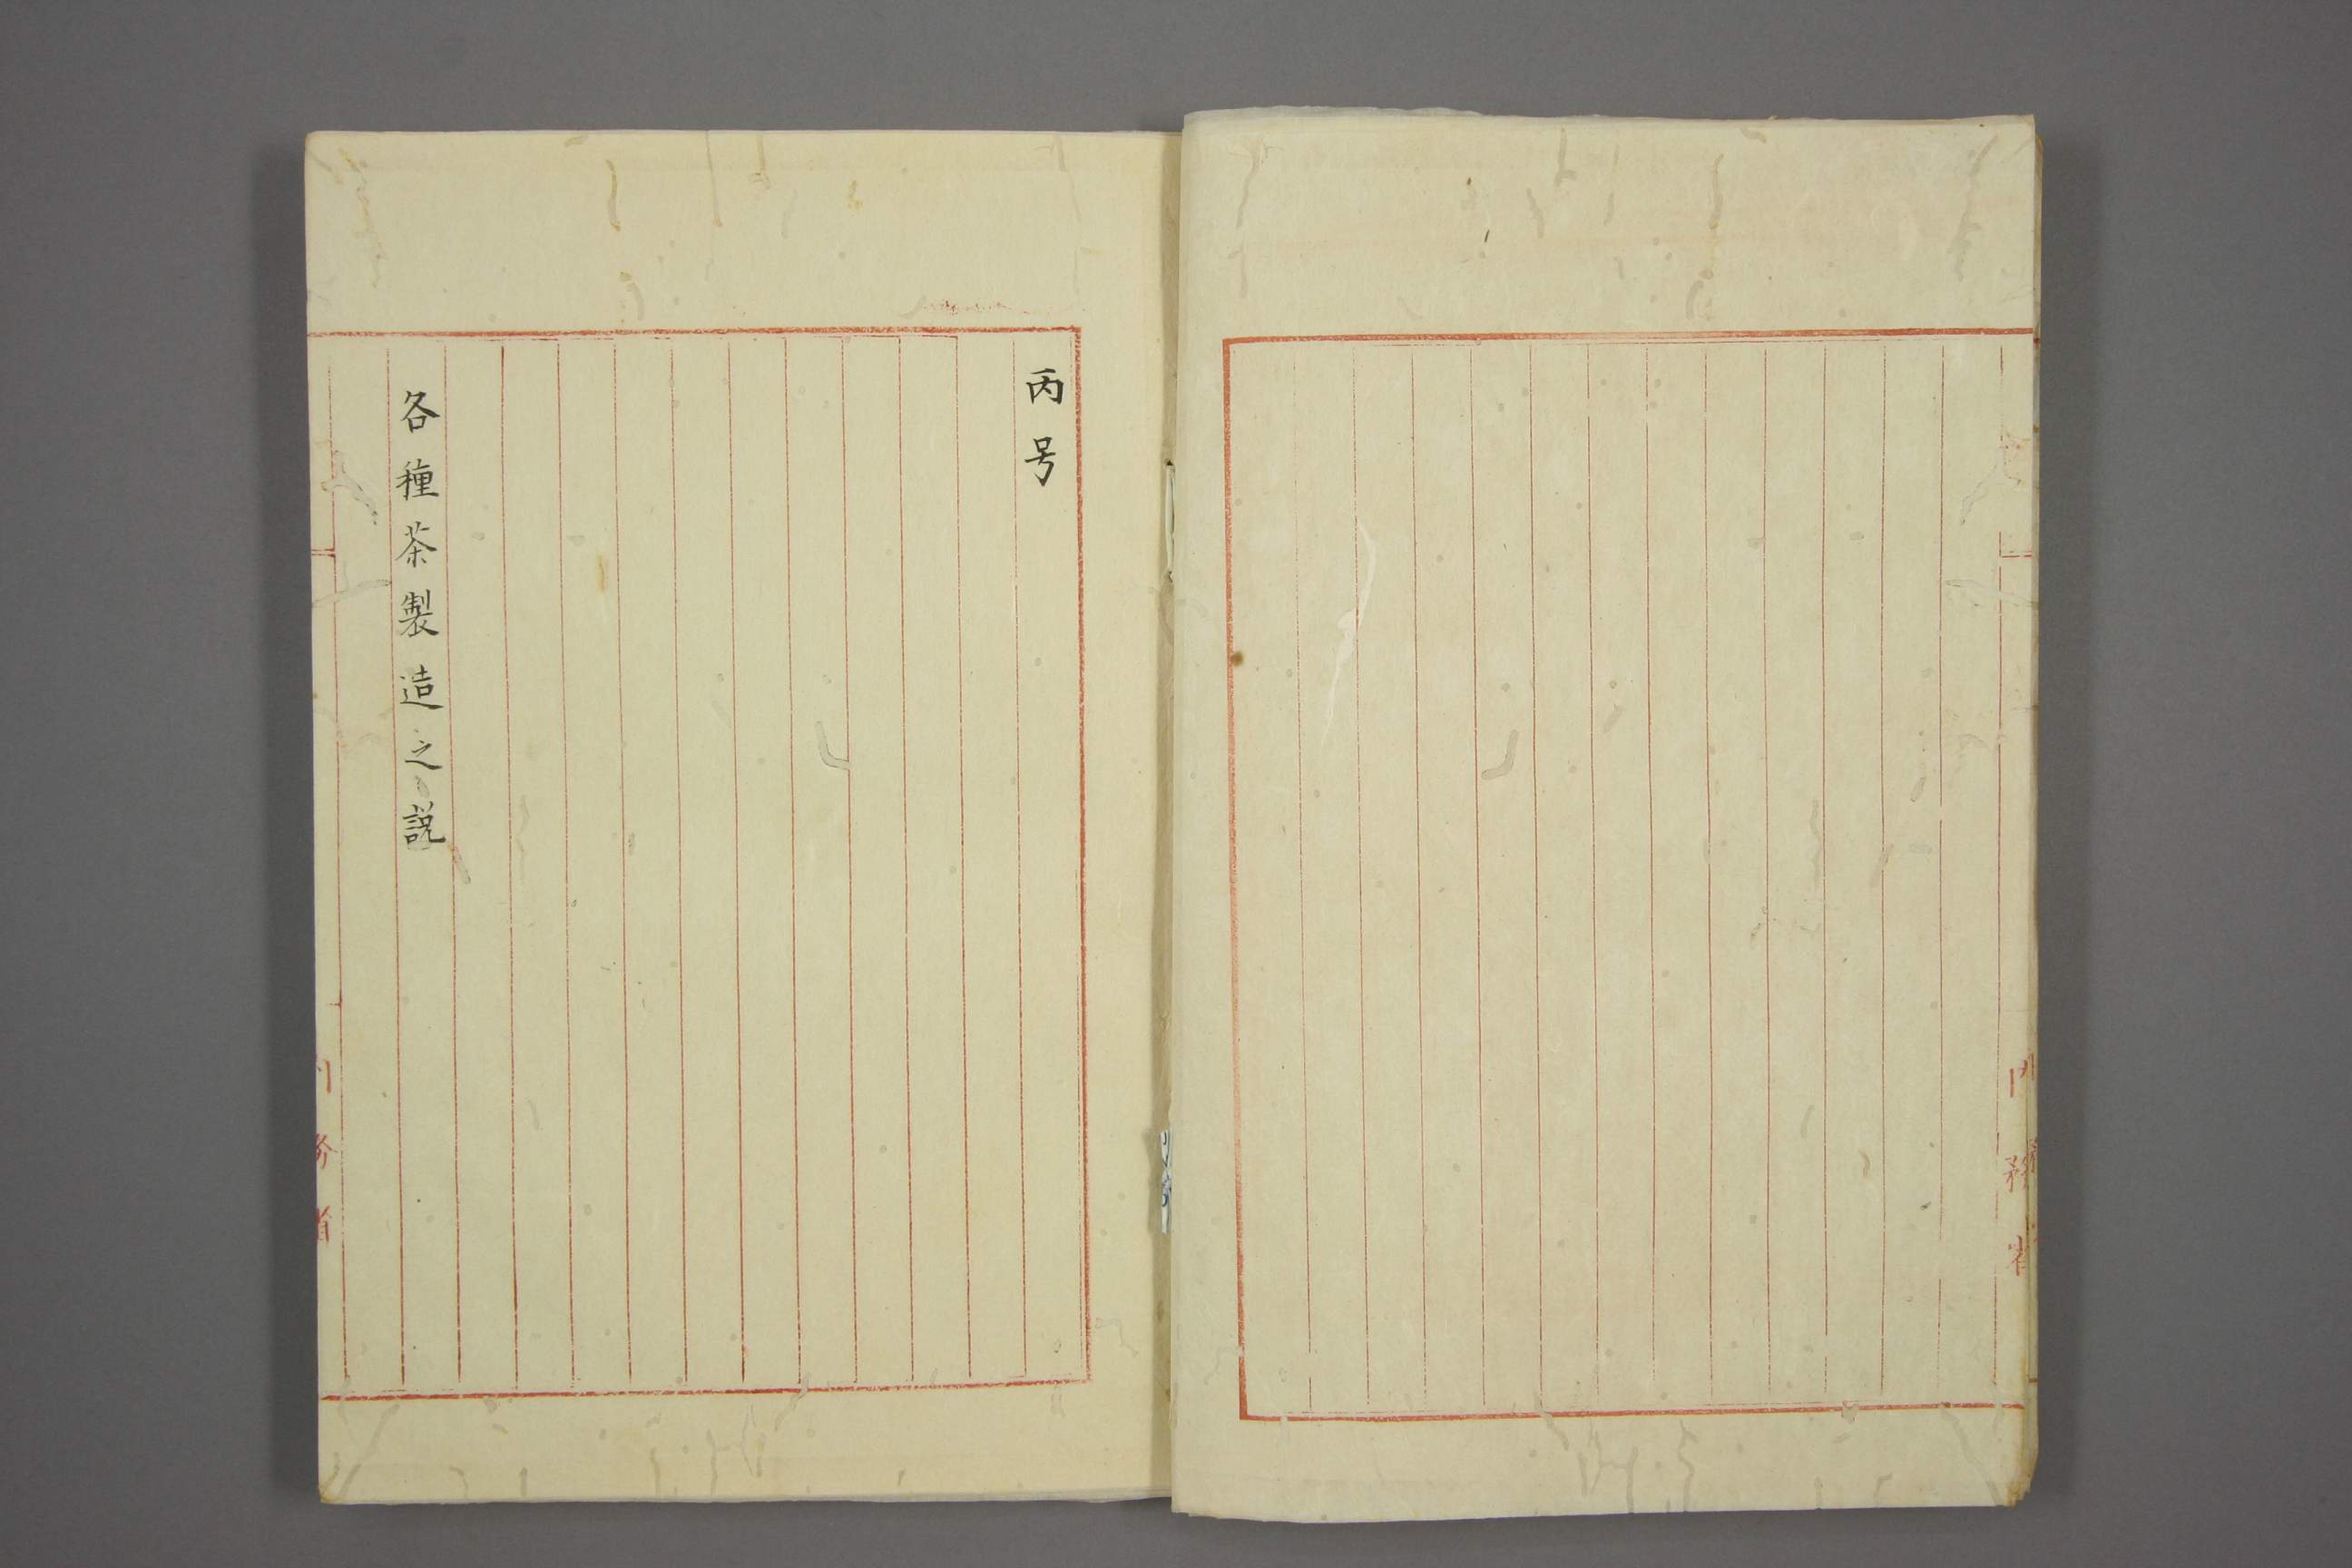 内務省
丙号
各種茶製造之説
内務省